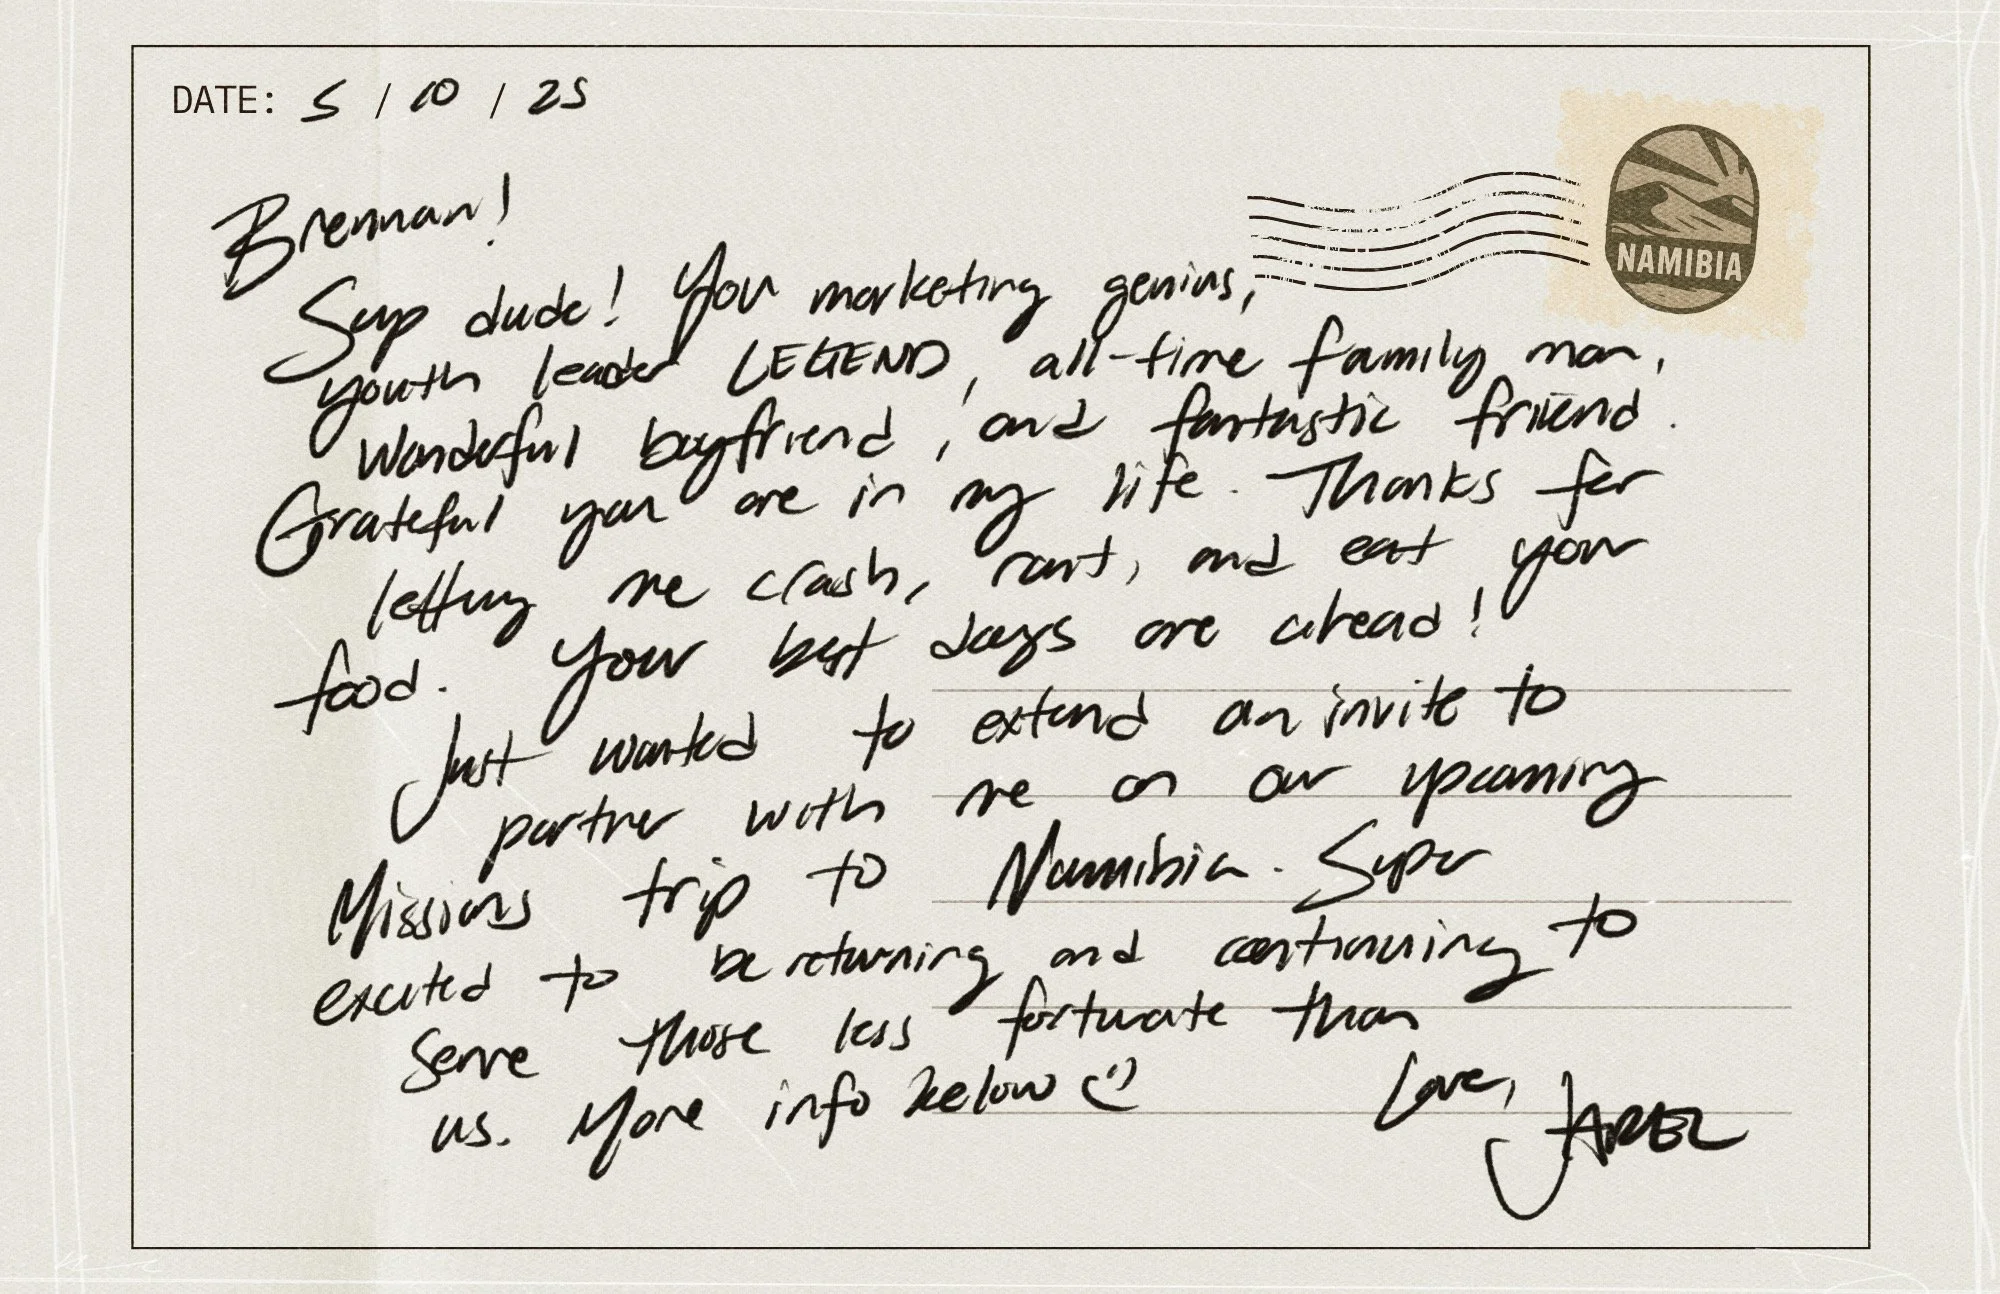 DATE: 5 / 10 / 25
Brennan!
Sup dude! You marketing genius,
youth leader LEGEND, all-time family man,
wonderful boyfriend, and fantastic friend.
Grateful you are in my life. Thanks for
letting me crash, rant, and eat your
food. Your best days are ahead!
Just wanted to extend an invite to
partner with me on our upcoming
Missions trip to Namibia. Super
excited to be returning and continuing to
serve those less fortunate than
us. More info below :)
Love,
JAREL
NAMIBIA